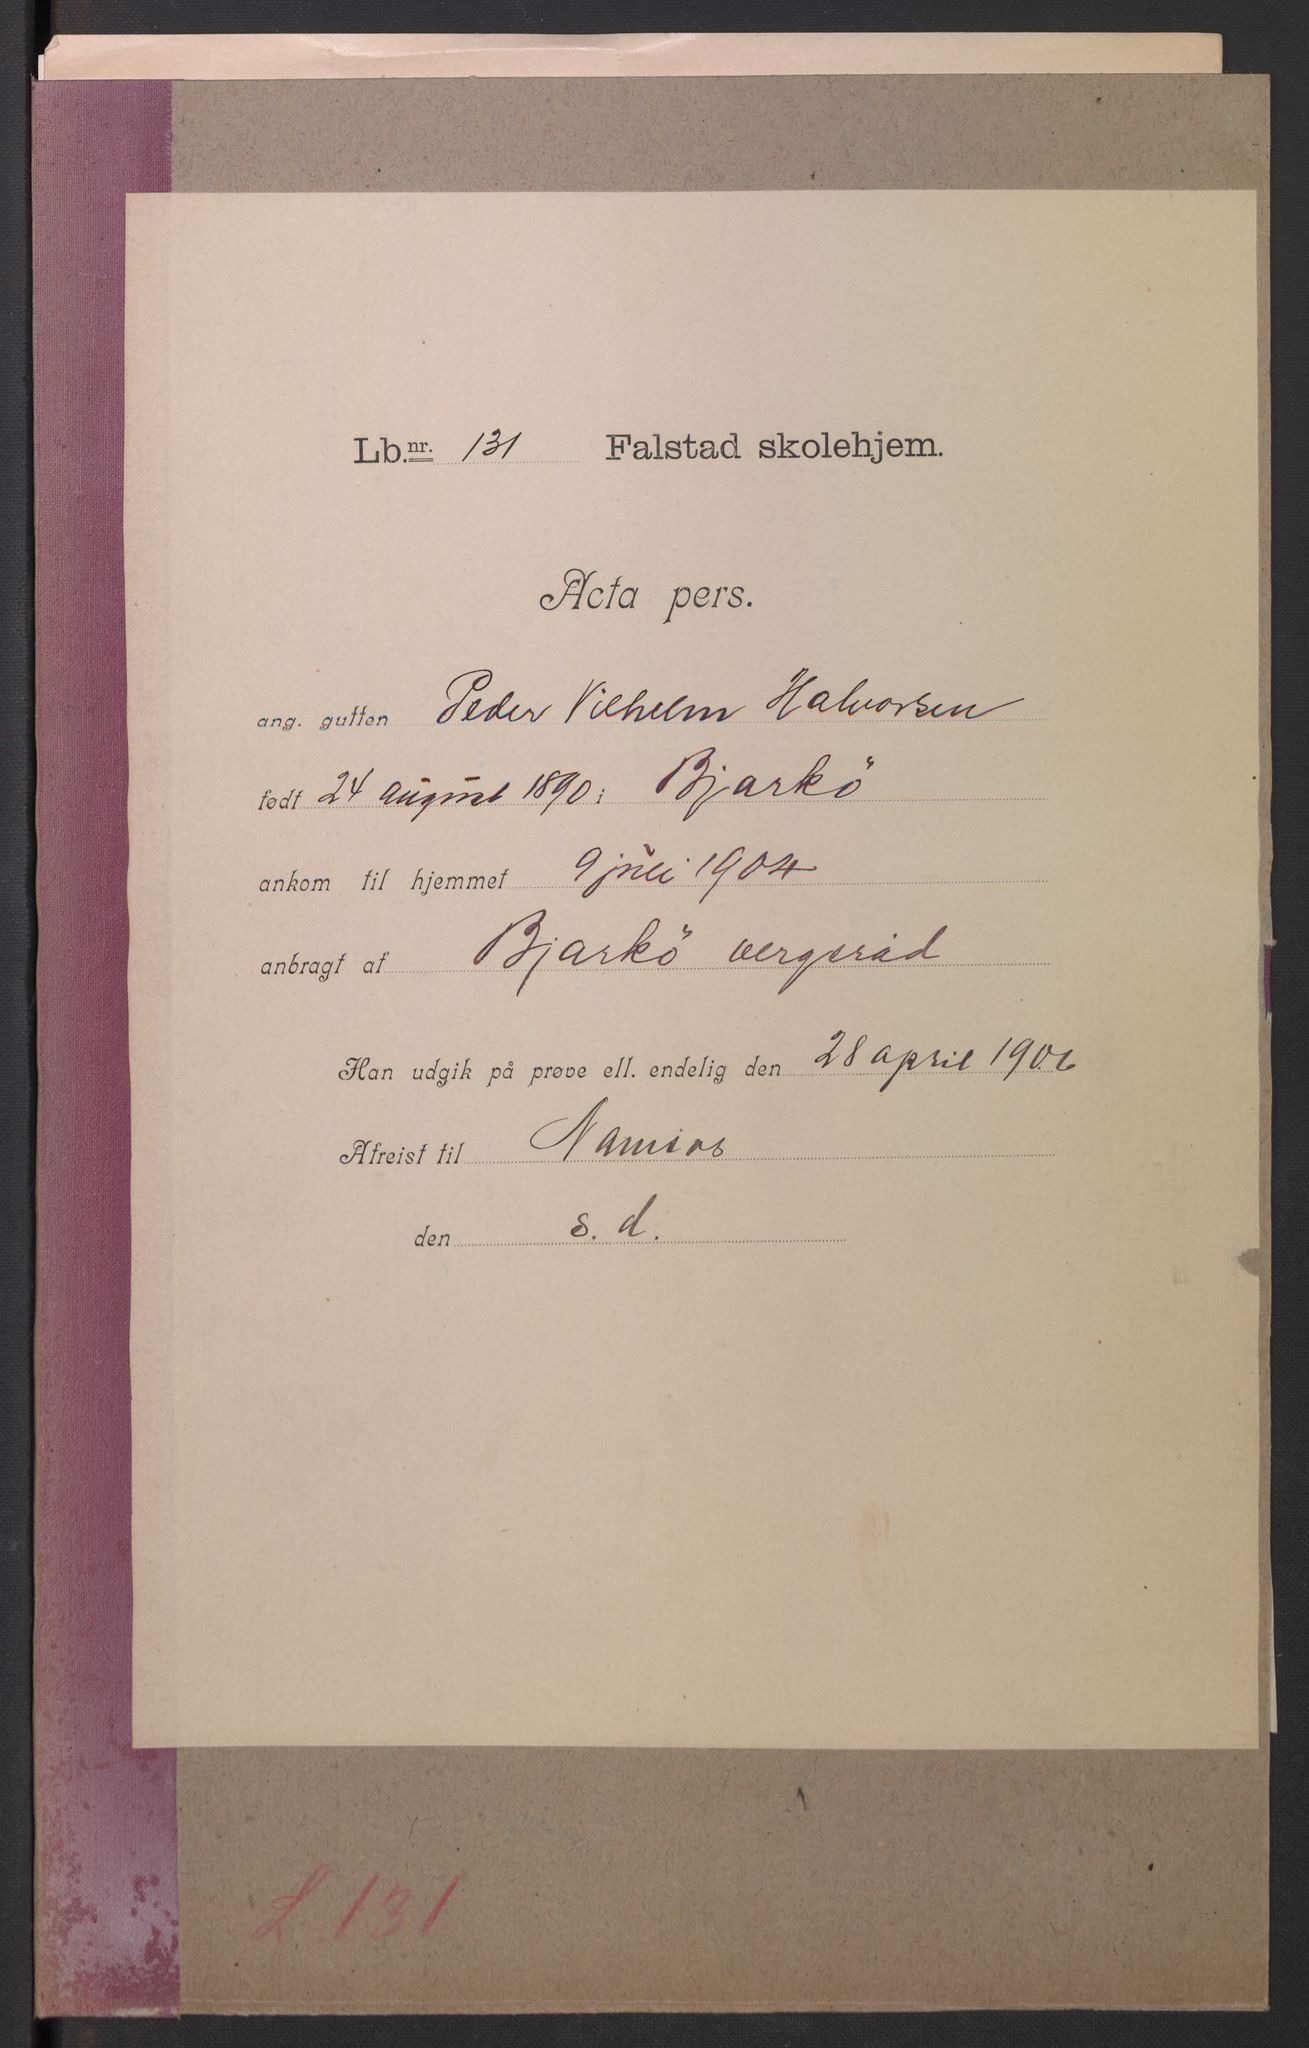 Lb.nr. 131 Falstad skolehjem.
Acta pers.
ang. gutten Peder Vilhelm Halvorsen
født 24 august 1890 i Bjarkö
ankom til hjemmet 9 juli 1904
anbragt af Bjarkö vergeråd
Han udgik på prøve ell. endelig den 28 april 1906
Afreist til Namsos
den s. d.
L 131